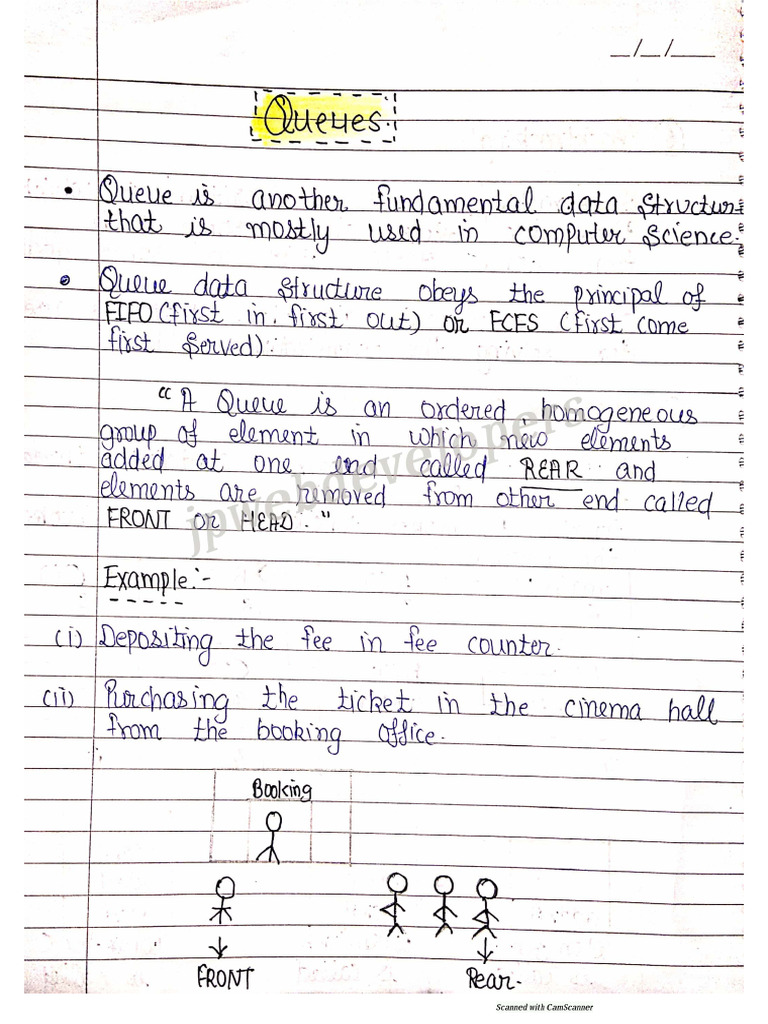 _/_/___
Queues.
• Queue is another fundamental data structure
that is mostly used in computer science.
• Queue data structure obeys the principal of
FIFO (first in first out) or FCFS (first come
first served).
"A Queue is an ordered, homogeneous
group of element in which new elements
added at one end called REAR and
elements are removed from other end called
FRONT or HEAD."
Example:-
(i) Depositing the fee in fee counter.
(ii) Purchasing the ticket in the cinema hall
from the booking office.
Booking
FRONT
Rear.
jpwebdevelopers
Scanned with CamScanner